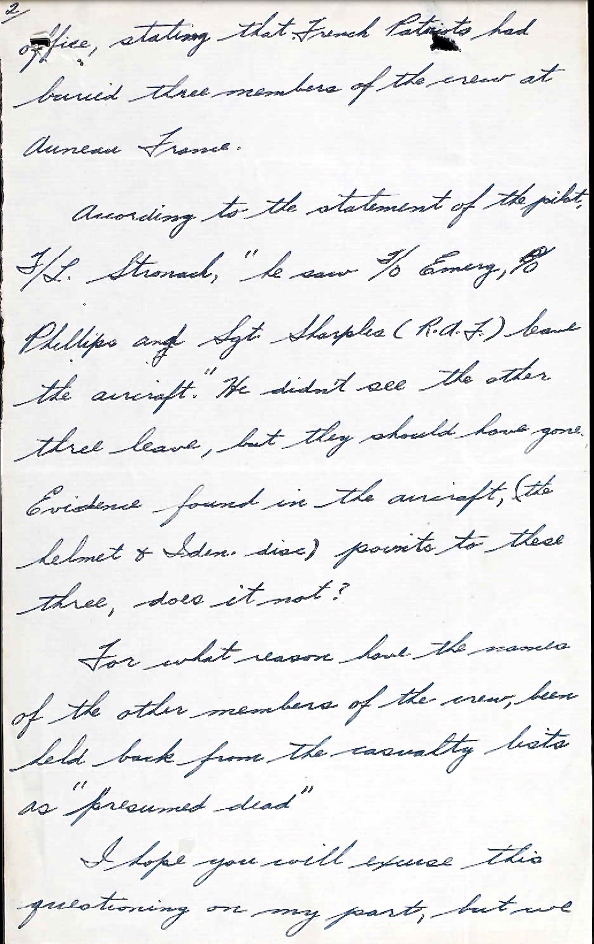 2/
office, stating that French Patriots had
buried three members of the crew at
Auneau France.
According to the statement of the pilot,
F/L. Stronach, "he saw F/O Emery, P/O
Phillips and Sgt. Sharples (R.A.F.) leave
the aircraft." He didn't see the other
three leave, but they should have gone.
Evidence found in the aircraft, (the
helmet & Iden. disc) points to these
three, does it not?
For what reason have the names
of the other members of the crew, been
held back from the casualty lists
as "presumed dead"
I hope you will excuse this
questioning on my part, but we